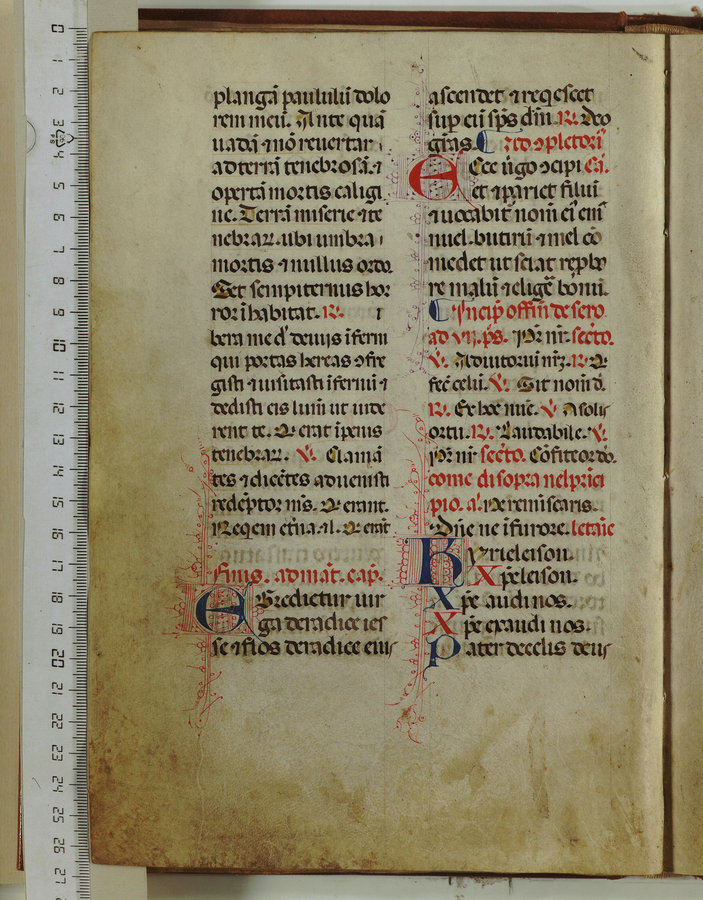 plangā paululū dolo
rem meū. Ante quā
uadā ⁊ nō reuertar
ad terrā tenebrosā. ⁊
opertā mortis caligi
ne. Terrā miserie ⁊ te
nebraꝝ. ubi umbra
mortis ⁊ nullus ordo.
Set sempiternus hor
ror īhabitat. R.
bera me d̄ deuijs īferni
qui portas hereas ꝯfre
gisti ⁊ uisitasti īfernū ⁊
dedisti eis lumē ut uide
rent te. Q̄ erāt ī penis
tenebraꝝ. V. Clamā
tes ⁊ dicētes aduenisti
redēptor nr̄s. Q̄ erant.
Reqem etnā. al. Q̄ erāt
finis. ad mat̄. cap̄.
Egredietur uir
ga de radice ies
se ⁊ flos de radice eius
ascendet ⁊ reqescet
sup eū sp̄s dn̄i. R. Deo
gr̄as. Ad ꝯpletoriū
Ecce ūgo ꝯcipi ca.
et ⁊ pariet filiū
⁊ uocabit̄ nom̄ ei em̄
nuel. butirū ⁊ mel co
medet ut sciat repbo
re malū ⁊ eligē bonū.
Incip̄ offm̄ de sero
ad VII. ps. Pr̄ nr̄. secto.
V. Adiutoriū nr̄z. R. Q
fec̄ celū. V. Sit nom̄ d.
R. Ex hoc nuc̄. V. A solis
ortu. R. Laudabile. V.
Pr̄ nr̄ secto. Cōfiteor do.
come di sopra nel prīci
pio. a. Ne reminiscaris.
Dn̄e ne ī furore. letaie
Kyrieleison.
Xp̄eleison.
Xp̄e audi nos.
Xp̄e exaudi nos.
Pater de celis deus